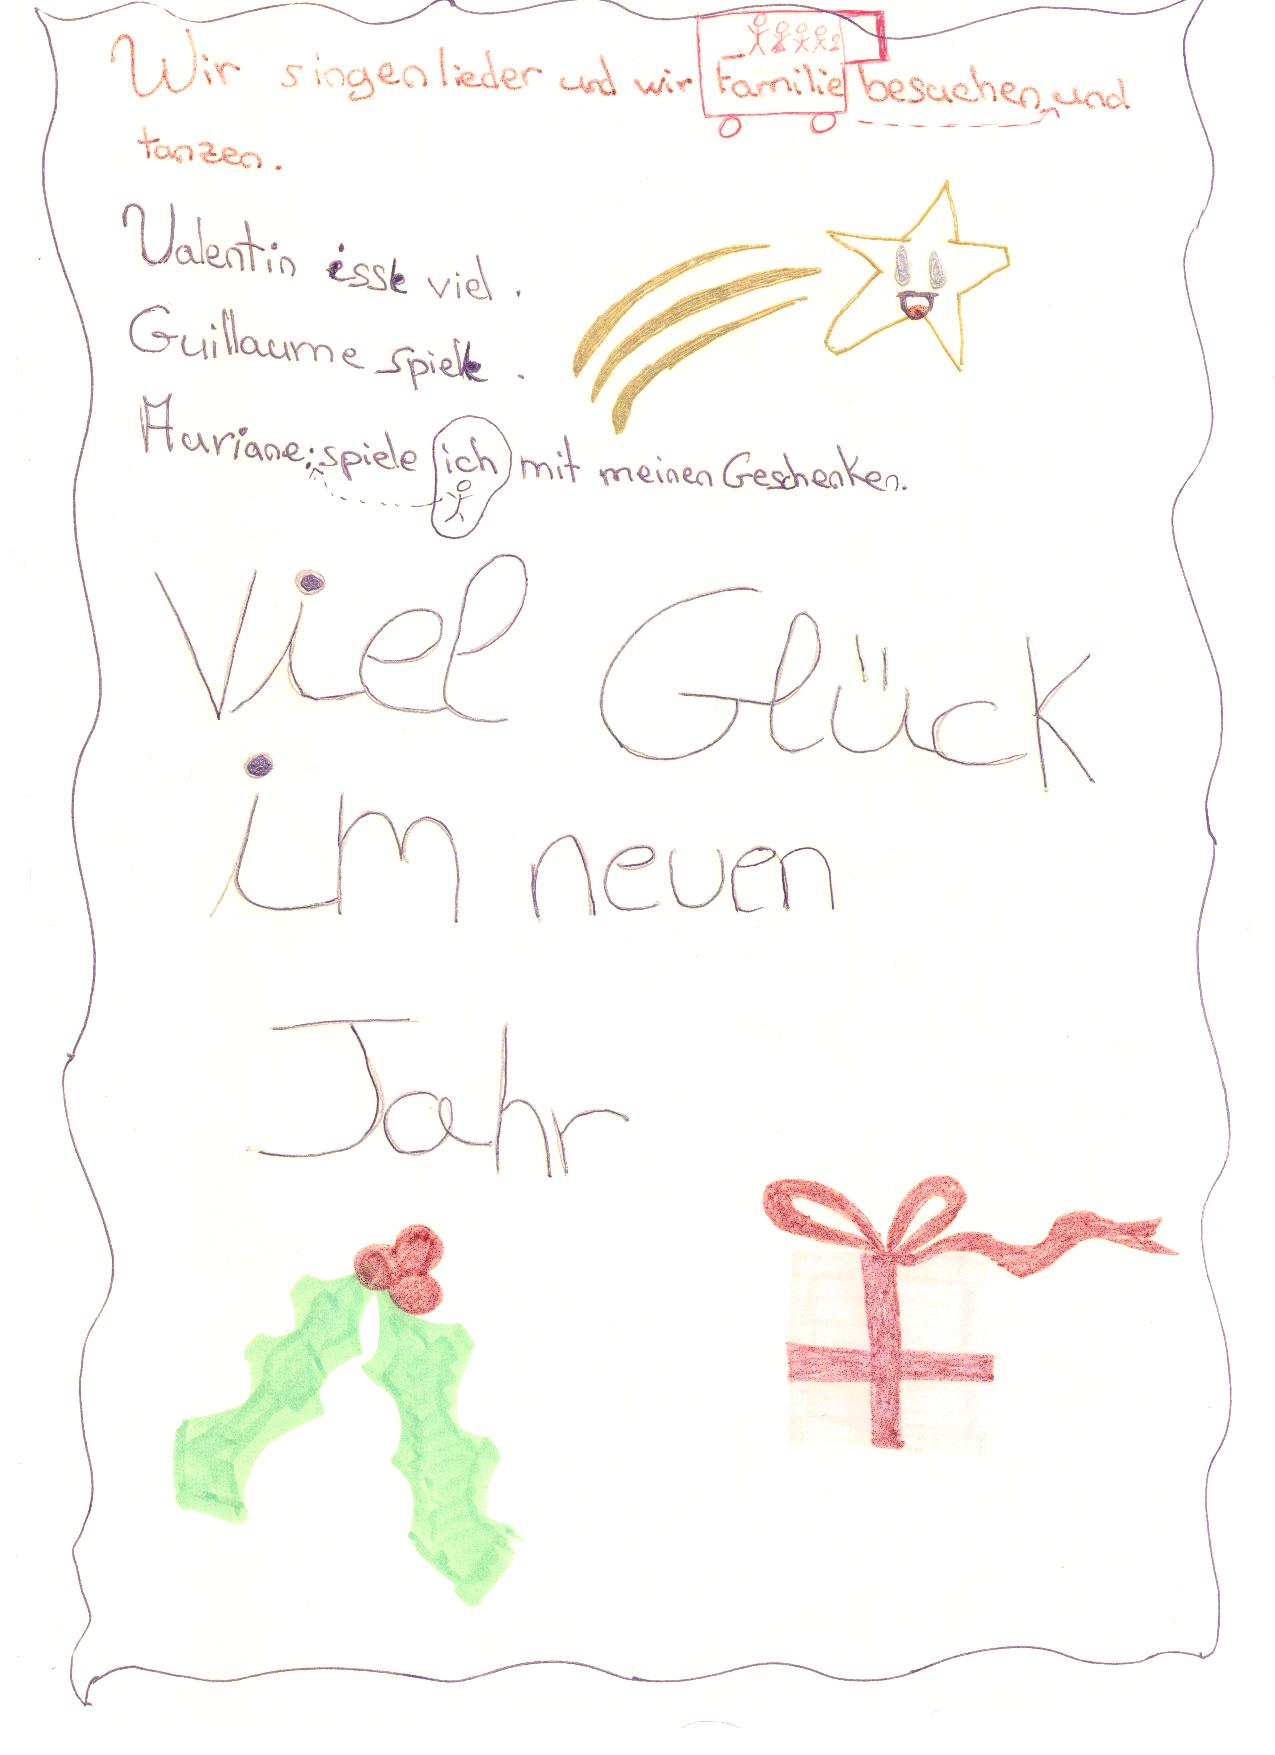 Wir singen lieder und wir Familie besuchen und
tanzen.
Valentin isst viel.
Guillaume spielt.
Auriane: spiele ich mit meinen Geschenken.
Viel Glück
im neuen
Jahr